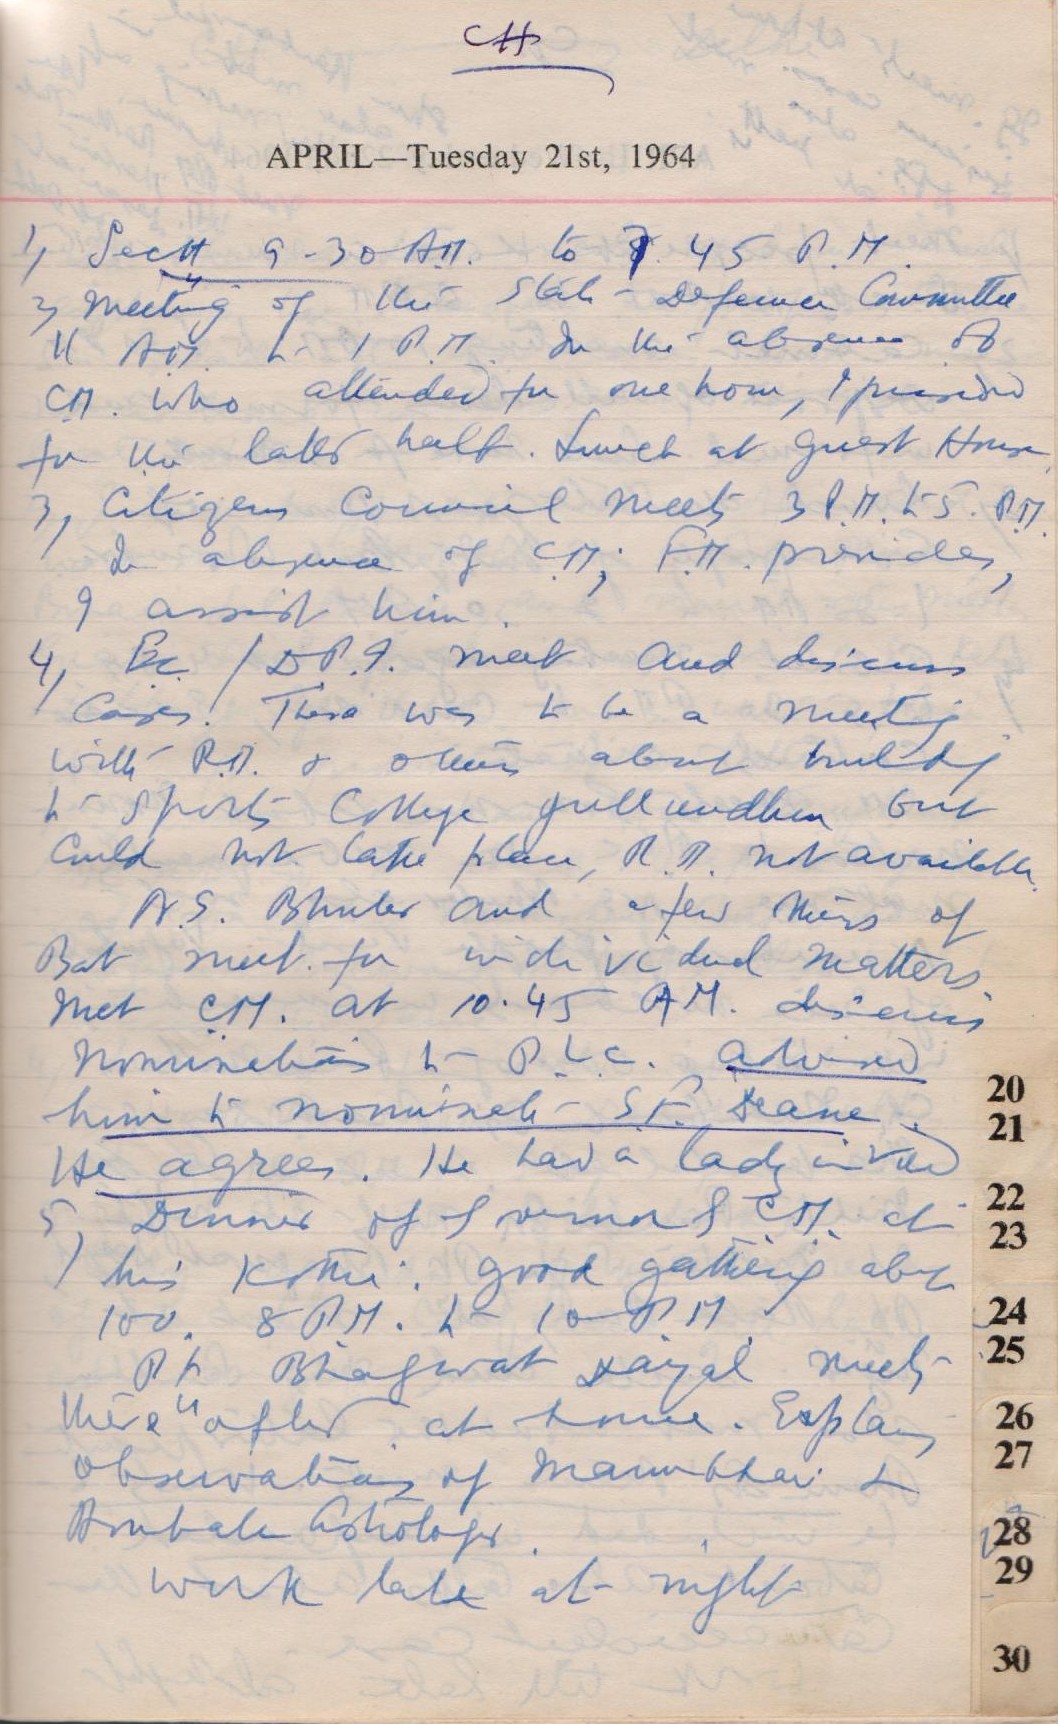 CH
APRIL—Tuesday 21st, 1964
1, Sectt 9-30 A.M. to 7.45 P.M.
2, Meeting of the State Defence Committee
11 AM. to 1 P.M. In the absence of
CM. who attended for one hour, I presided
for the later half. Lunch at Guest House,
3, Citizens Council meets 3 P.M. to 5. P.M.
In absence of C.M; F.M. presides,
I assist him.
4, Ec. / D.P.I. meet and discuss
Cases. There was to be a meeting
with R.M. & others about building
to Sports College Jullundhur but
could not take place, R.M. not available.
A.S. Bhuler and a few others of
Bat meet for individual matters.
Met CM. at 10.45 AM. discuss
nominations to P.L.C. advised
him to nominate S.F. Deane.
He agrees. He had a lady in view
5, Dinner of Governor & CM. at
his Kothi. good gathering about
100. 8 P.M. to 10 P.M
Pt Bhagwat Dayal meets
there & after at home. Explains
observations of Manubhai &
Ambala Astrologer.
work late at night
20
21
22
23
24
25
26
27
28
29
30